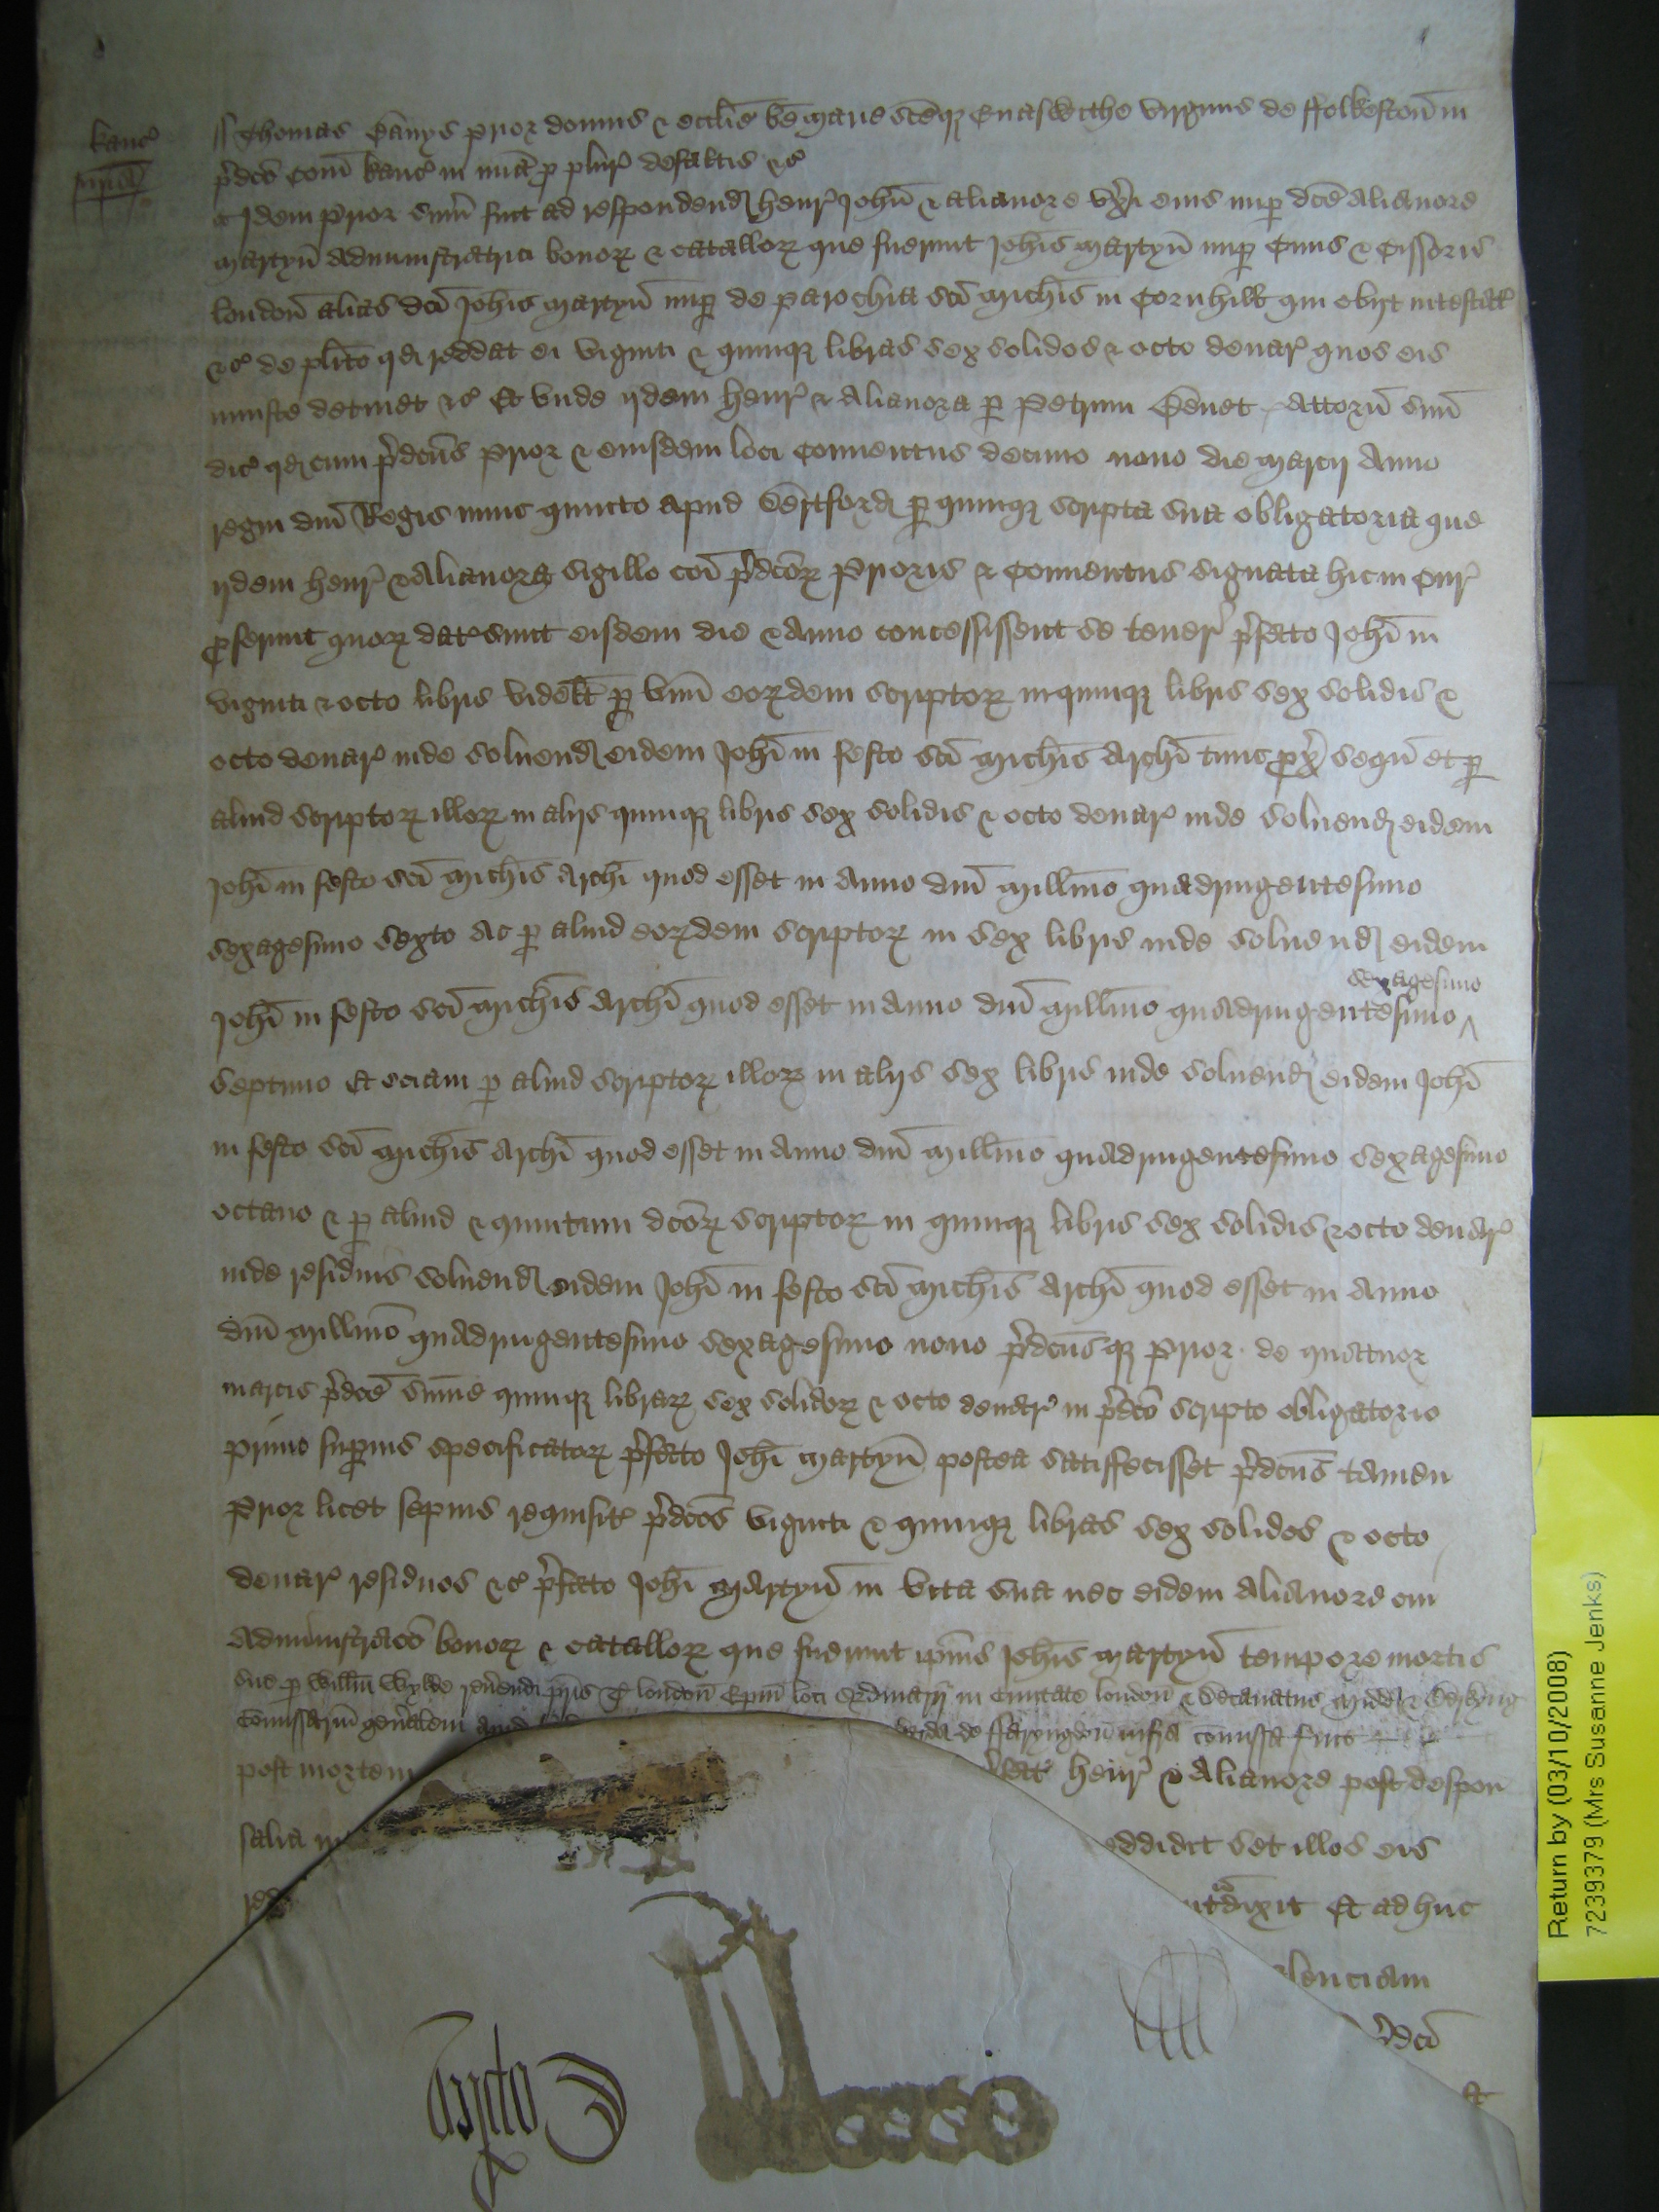 Kanc'
mi͠a
ss Thomas Banys prior domus & eccli͠e be͠ Marie sc͠eq3 Enaswithe virginis de ffolkeston͠ in
p'dco͠ Com͠ Kanc' in mi͠a p plur' defaltis &c'
& Idem prior sum͠ fuit ad respondend' Henr' Joh͠n & Alianore vx'i eius nup dce͠ Alianore
Martyn͠ administratrici bonor' & catallor' que fuerunt Joh͠is Martyn͠ nup Civis & Cissoris
london͠ alias dci͠ Joh͠is Martyn͠ nup de parochia sc͠i Mich͠is in Cornhill' qui obijt intestat'
&c' de pl͠ito qd' reddat ei viginti & quinq3 libras sex solidos & octo denar' quos eis
iniuste detinet &c' Et vnde ijdem Henr' & Alianora p Petrum Benet Attorn͠ suu͠
dic' qd' cum p'dcu͠s Prior & eiusdem loci Conventus decimo nono die Marcij Anno
regni dn͠i Regis nunc quinto apud Dertford' p quinq3 scripta sua obligatoria que
ijdem Henr' & Alianora sigillo coi͠ p'dco͠r' Prioris & Conventus signata hic in Cur'
pferunt quor' dat' sunt eisdem die & Anno concessissent se teneri p'fato Joh͠i in
viginti & octo libris videlt' p vnu͠ eor'dem scriptor' in quinq3 libris sex solidis &
octo denar' inde solvend' eidem Joh͠i in festo sc͠i Mich͠is Arch͠i tunc px' sequ͠ et p
aliud scriptor' illor' in alijs quinq3 libris sex solidis & octo denar' inde solvend' eidem
Joh͠i in festo sc͠i Mich͠is Arch͠i quod esset in Anno dn͠i Millm͠o quadringentesimo
sexagesimo sexto Ac p aliud eor'dem scriptor' in sex libris inde solvend' eidem
sexagesimo
Joh͠i in festo sc͠i Mich͠is Arch͠i quod esset in Anno dn͠i Millm͠o quadringentesimo ^
septimo Et eciam p aliud scriptor' illor' in alijs sex libris inde solvend' eidem Joh͠i
in festo sc͠i Mich͠is Arch͠i quod esset in Anno dn͠i Millm͠o quadringentesimo sexagesimo
octavo & p aliud & quintum dco͠r' scriptor' in quinq3 libris sex solidis & octo denar'
inde residuis solvend' eidem Joh͠i in festo sc͠i Mich͠is Arch͠i quod esset in Anno
dn͠i Millm͠o quadringentesimo sexagesimo nono p'dcu͠sq3 Prior de quatuor
marcis p'dce͠ sum͠e quinq3 librar' sex solidor' & octo denar' in p'dco͠ scripto obligatorio
primo supius specificator' p'fato Joh͠i Martyn͠ postea satisfecisset p'dcu͠s tamen
Prior licet sepius requisit' p'dco͠s viginti & quinq3 libras sex solidos & octo
denar' residuos &c' p'fato Joh͠i Martyn͠ in vita sua nec eidem Alianore cui
Administraco͠ bonor' & catallor' que fuerunt ipi͠us Joh͠is Martyn͠ tempore mortis
sue p Willm͠ Wylde rev'endi pris T' london͠ Epm͠ loci Ordinarij in Civitate london͠ & decanatus Midd' & Berkyng
Comissarium gen'alem apud warda de ffaryngdon͠ infra comissa fuit
post mortem p'fat' Henr' & Alianore post despon
salia in eddidit set illos eis
redd ntradixit Et adhuc
alenciam
p'dci͠
Et
Return by (03/10/2008)
7239379 (Mrs Susanne Jenks)